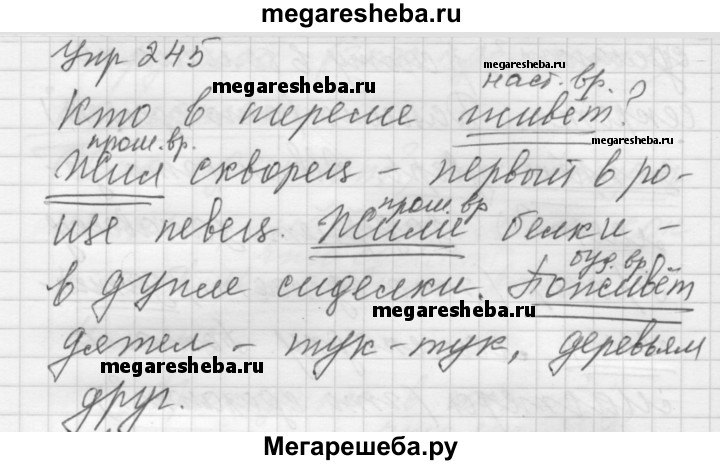 megaresheba.ru
Упр 245
megaresheba.ru
наст. вр.
megaresheba.ru
Кто в тереме живёт?
megaresheba.ru
прош. вр.
Жил скворец – первый в ро-
прош. вр
ще певец. Жили белки –
буд. вр.
в дупле сиделки. Поживёт
megaresheba.ru
дятел – тук-тук, деревьям
megaresheba.ru
друг.
Мегарешеба.ру